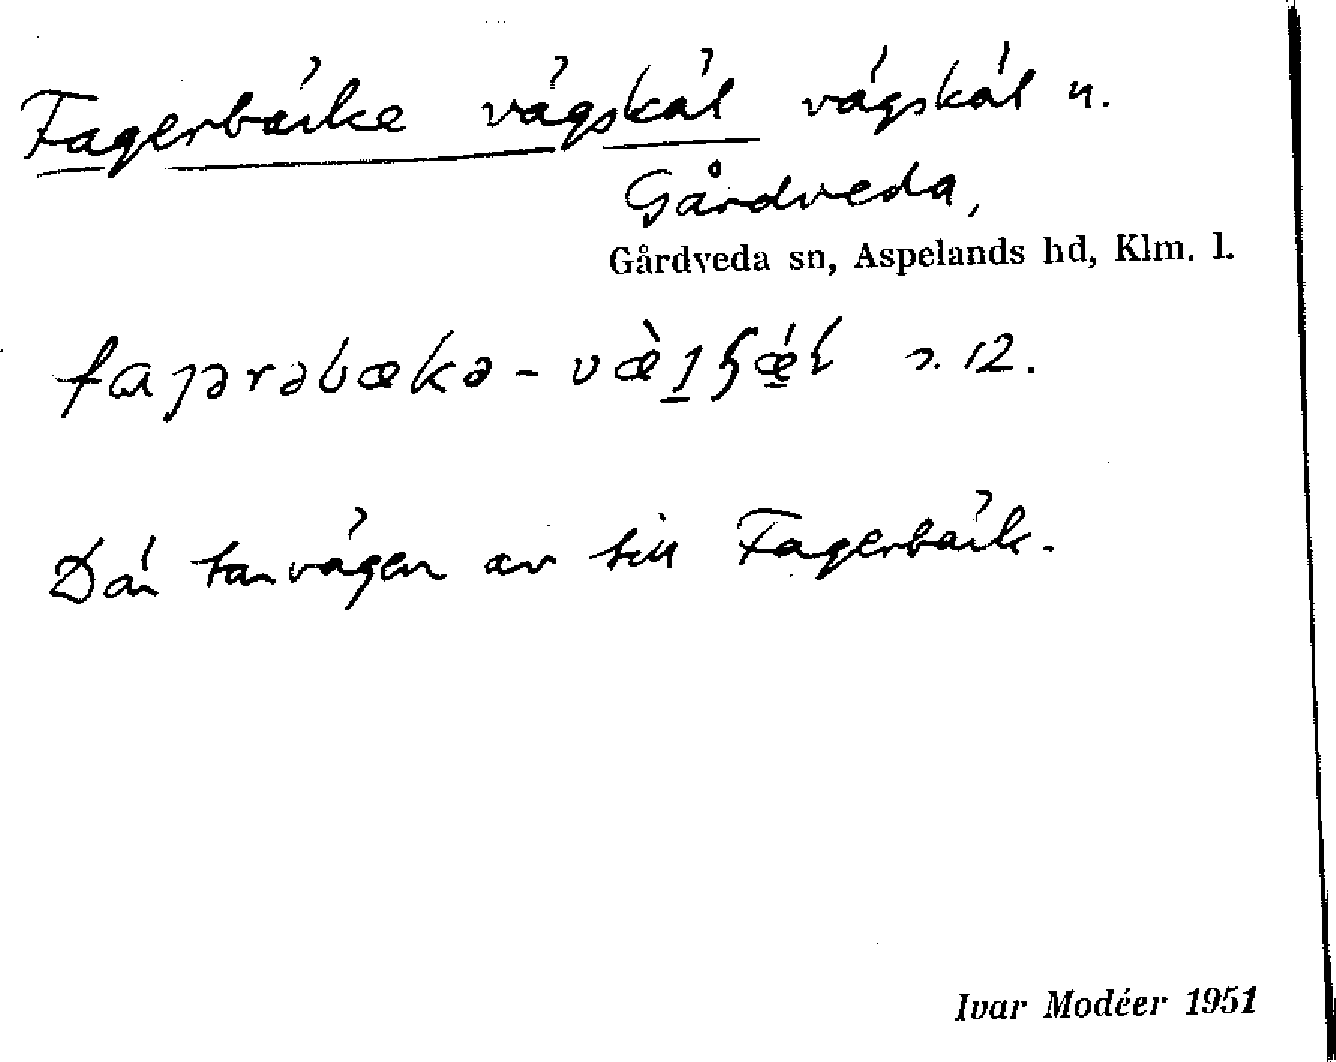 Fagerbäcke vägskäl vägskäl n.
Gårdveda,
Gårdveda sn, Aspelands hd, Klm. l.
Där tar vägen av till Fagerbäck.
Ivar Modéer 1951